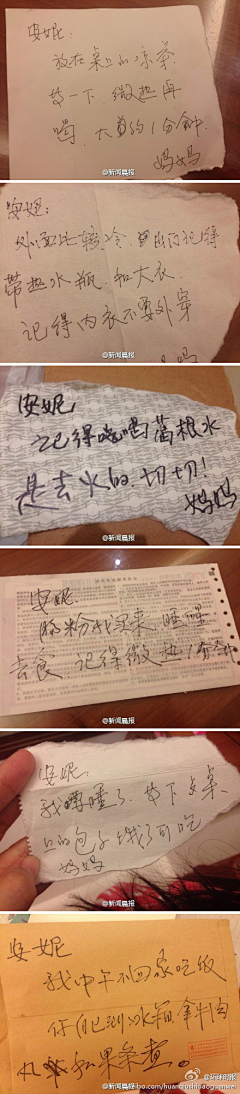 安妮:
放在桌上的凉茶
一下,微热再
喝,大约1分钟.
妈妈
@新闻晨报
安妮:
外面比较冷,出门记得
带热水瓶.和大衣.
记得内衣不要外穿
妈妈
@新闻晨报
安妮,
记得喝葛根水
是去火的.切切!
妈妈
@新闻晨报
安妮.
肠粉我买来,睡醒
去食 记得微热1分钟
@新闻晨报
安妮,
我睡了.
上的包子饿了可吃
妈妈
@新闻晨报
安妮
我中午不回家吃饭
你自己到冰箱拿牛肉
丸和果条煮。
@环球时报
weibo.com/huanqiushibaoguanwei